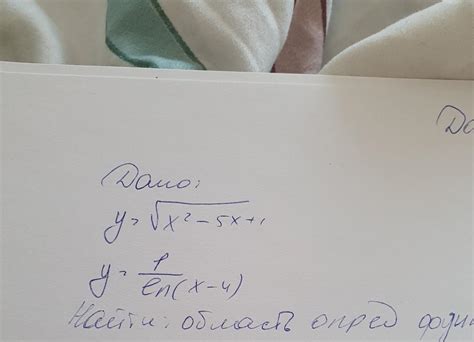 Да
Дано:
y=√x²-5x+1
y=1/ln(x-4)
Найти: область опред фун